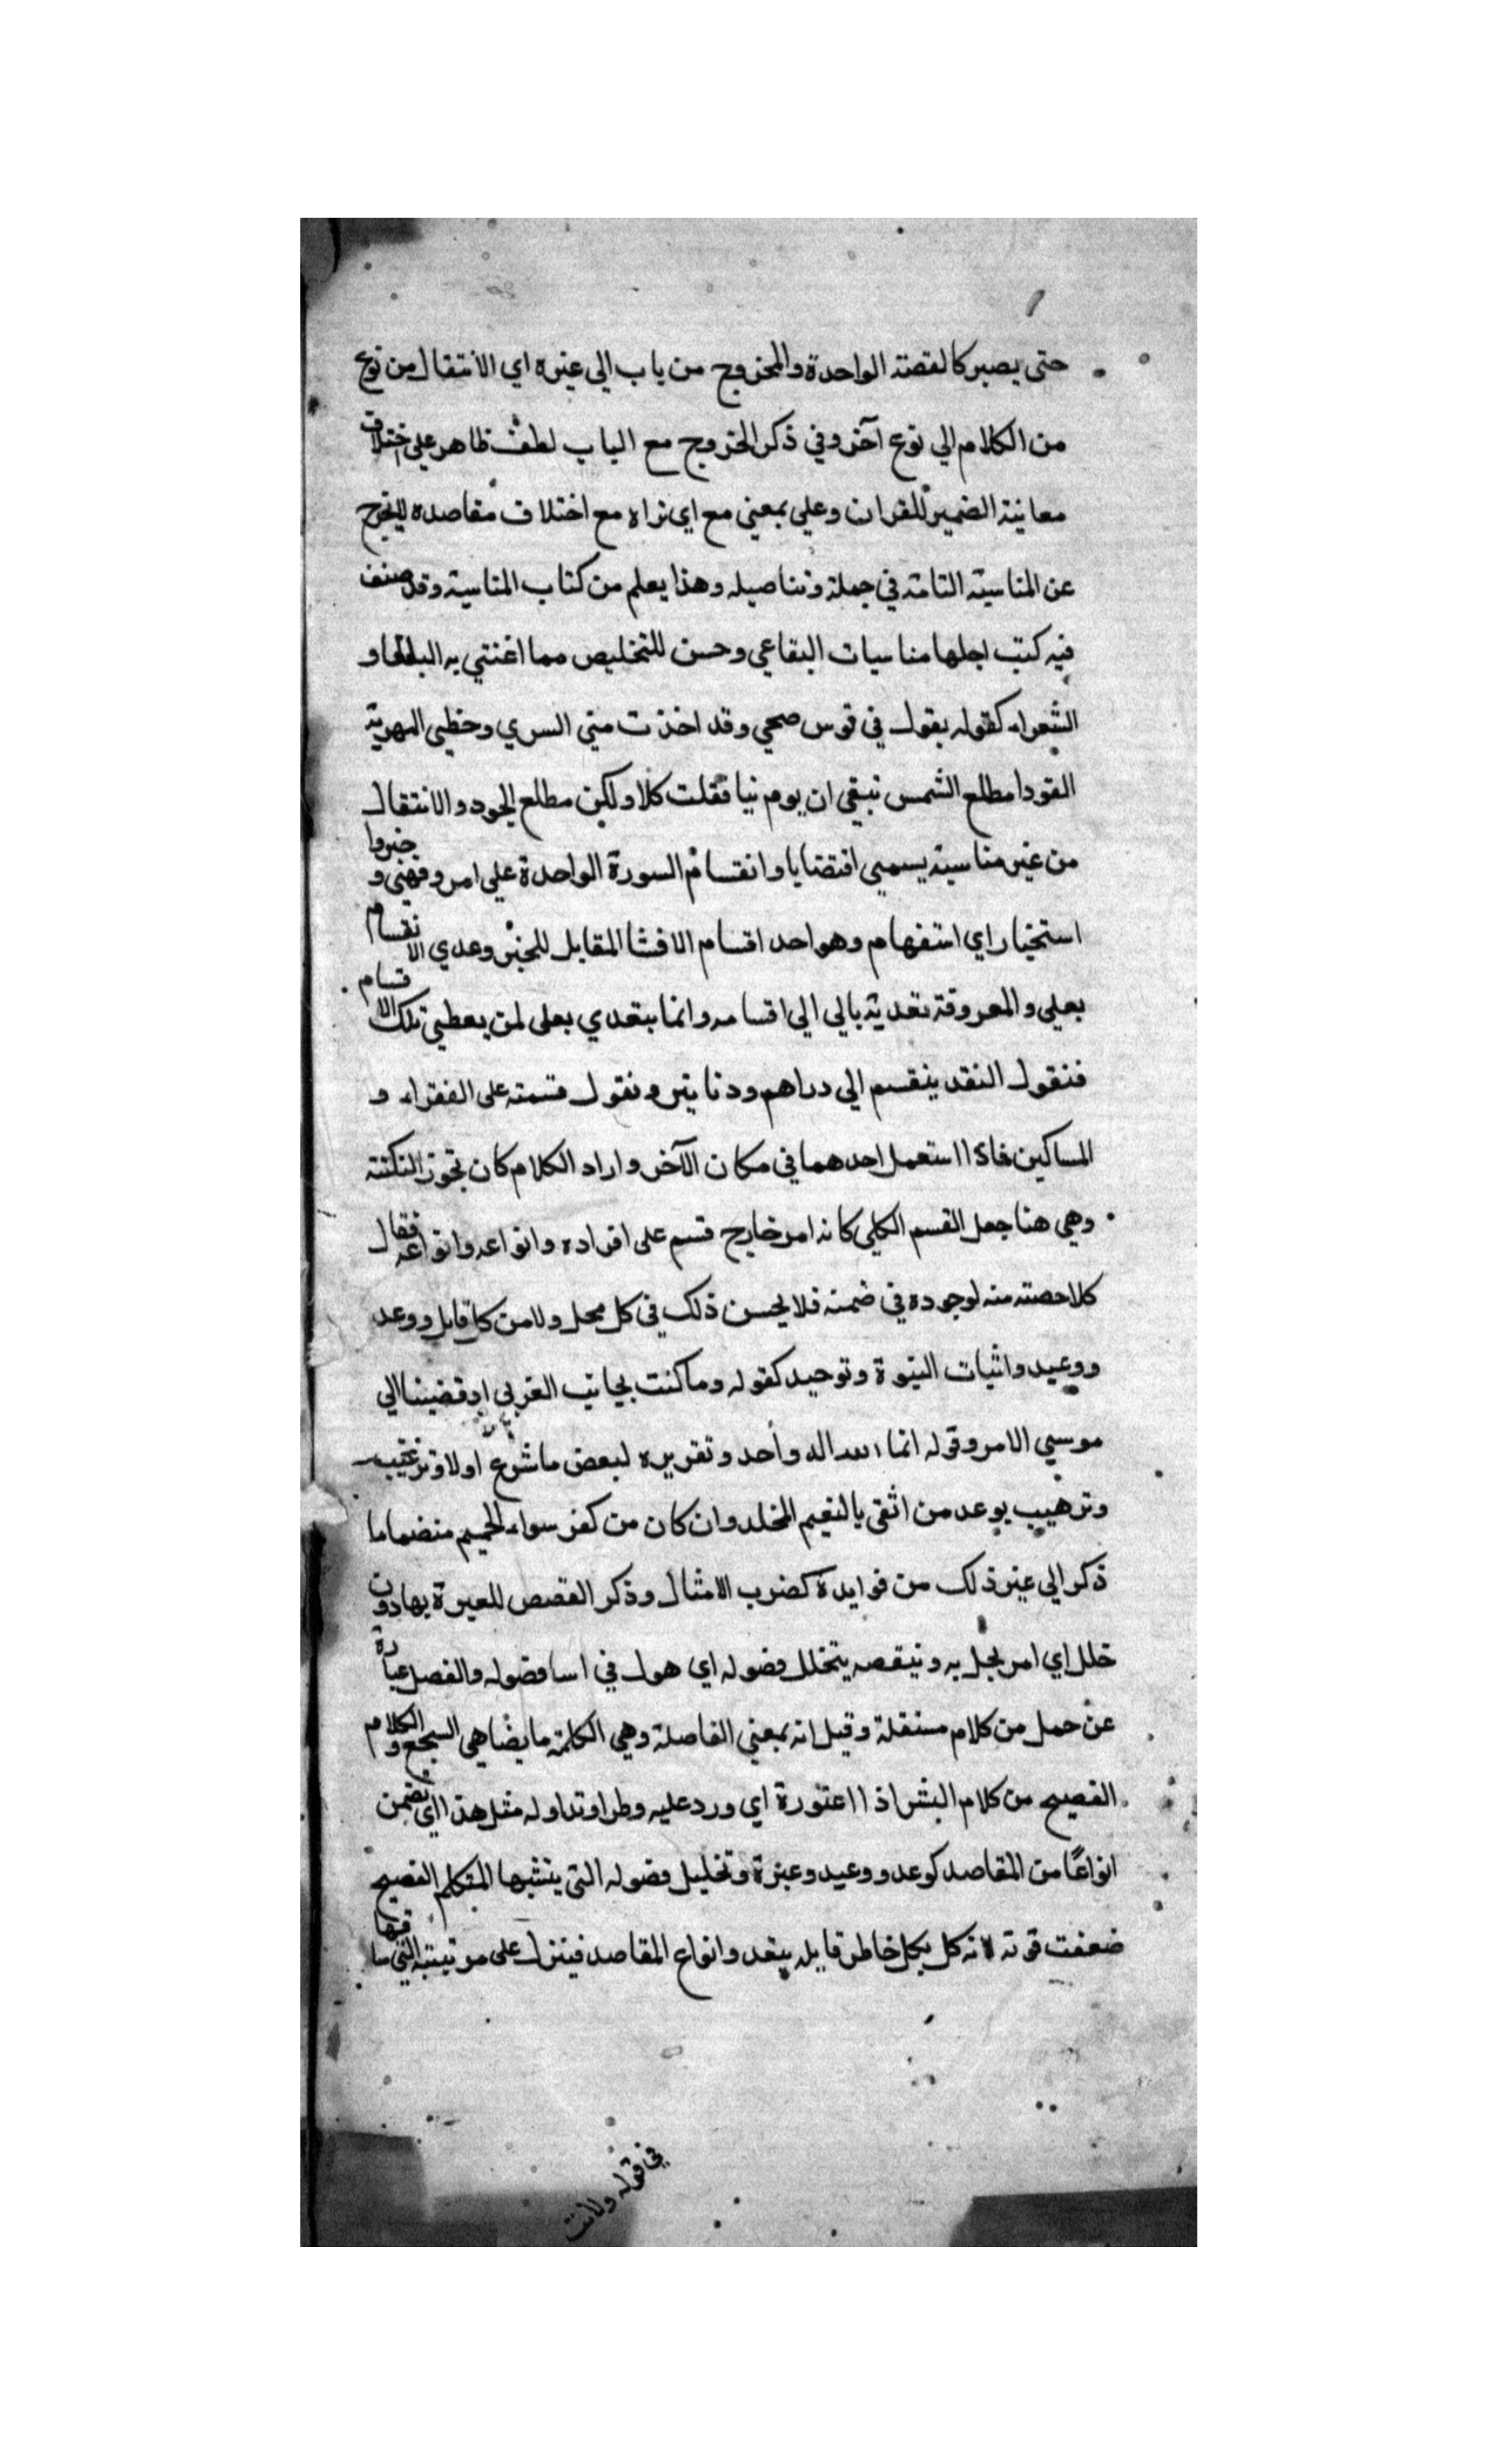 حتى يصير كالقصة الواحدة والخروج من باب الي غيره اي الانتقال من نوع
من الكلام الي نوع آخر وفي ذكر الخروج مع الباب لطف ظاهر علي اختلاف
معانيه الضمير للقران وعلي بمعني مع اي نراه مع اختلاف مقاصده لايخرج
عن المناسبة التامة في جملة وتناصيله وهذا يعلم من كتاب المناسبة وقد صنف
فيه كتب اجلها مناسبات البقاعي وحسن للتخليص مما اعنتي به البلغا و
الشعراء كقوله يقول في قوس صحي وقد اخذت مني السري وخطي المهرية
القودا مطلع الشمس نبقي ان يوم نبا فقلت كلا ولكن مطلع الجود والانتقال
من غير مناسبة يسمي اقتضابا وانقسام السورة الواحدة علي امر وفهني وخبروا
استخبار اي استفهام وهو احد اقسام الانشا المقابل للخبر وعدي الانقسام
بعلي والمعروفة تعديته بالي الي اقسامه وانما يتعدي بعلى لمن يعطي تلك الاقسام
فنقول النقد ينقسم الي دراهم ودنانير ونقول قسمته على الفقراء و
المساكين فاذا استعمل احدهما في مكان الآخر واراد الكلام كان تجوز النكتة
وهي هنا جعل القسم الكلي كانه امر خارج قسم على افراده وانواعه وانواعه فقال
كلاحصته منه لوجوده في ضمنه فلا يحسن ذلك في كل محل ولا من كل قايل ووعد
ووعيد واثبات النبوة وتوحيد كقوله وما كنت بجانب الغربي اذ قضينا الي
موسي الامر وقوله انما الله اله واحد وتقريره لبعض ما شرع اولا وترغيب
وترهيب بوعد من اتقي بالنعيم المخلد وان كان من كفر سواء الجحيم منضما ما
ذكر الي غير ذلك من فوايدة كضرب الامثال وذكر القصص للعبرة بها دون
خلل اي امر يخل به وينقصه يتخلل فضوله اي هول في اسا فضوله والفصل عبارة
عن حمل من كلام مستقلة وقيل انه بمعني الفاصلة وهي الكلمة ما يضاهي السجع والكلام
الفصيح من كلام البشر اذا اعتورة اي ورد عليه وطرا وتداوله مثل هذا اي تضمن
انواعًا من المقاصد كوعد ووعيد وعبرة وتخليل فضوله التي ينشيها المتكلم الفصيح
ضعفت قوته لانه كل بكل خاطر قايله بتعدد انواع المقاصد فينزل على مرتبته التي فيها
في قوله ولانت